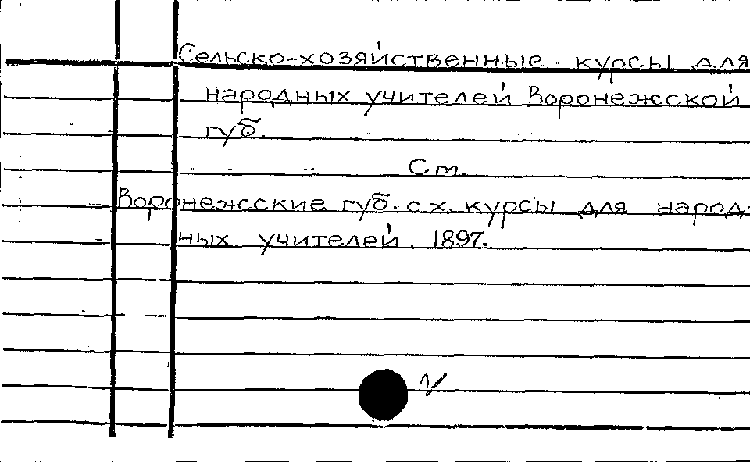 Сельско-хозяйственные курсы для
народных учителей Воронежской
губ.
См.
Воронежские губ. с.х. курсы для народ-
ных учителей. 1897.